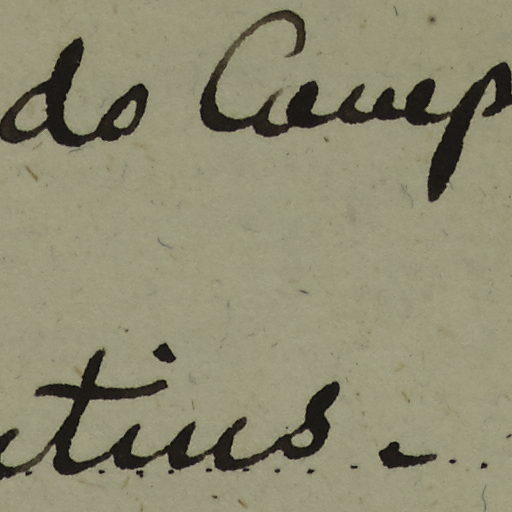 do Camp
tius.